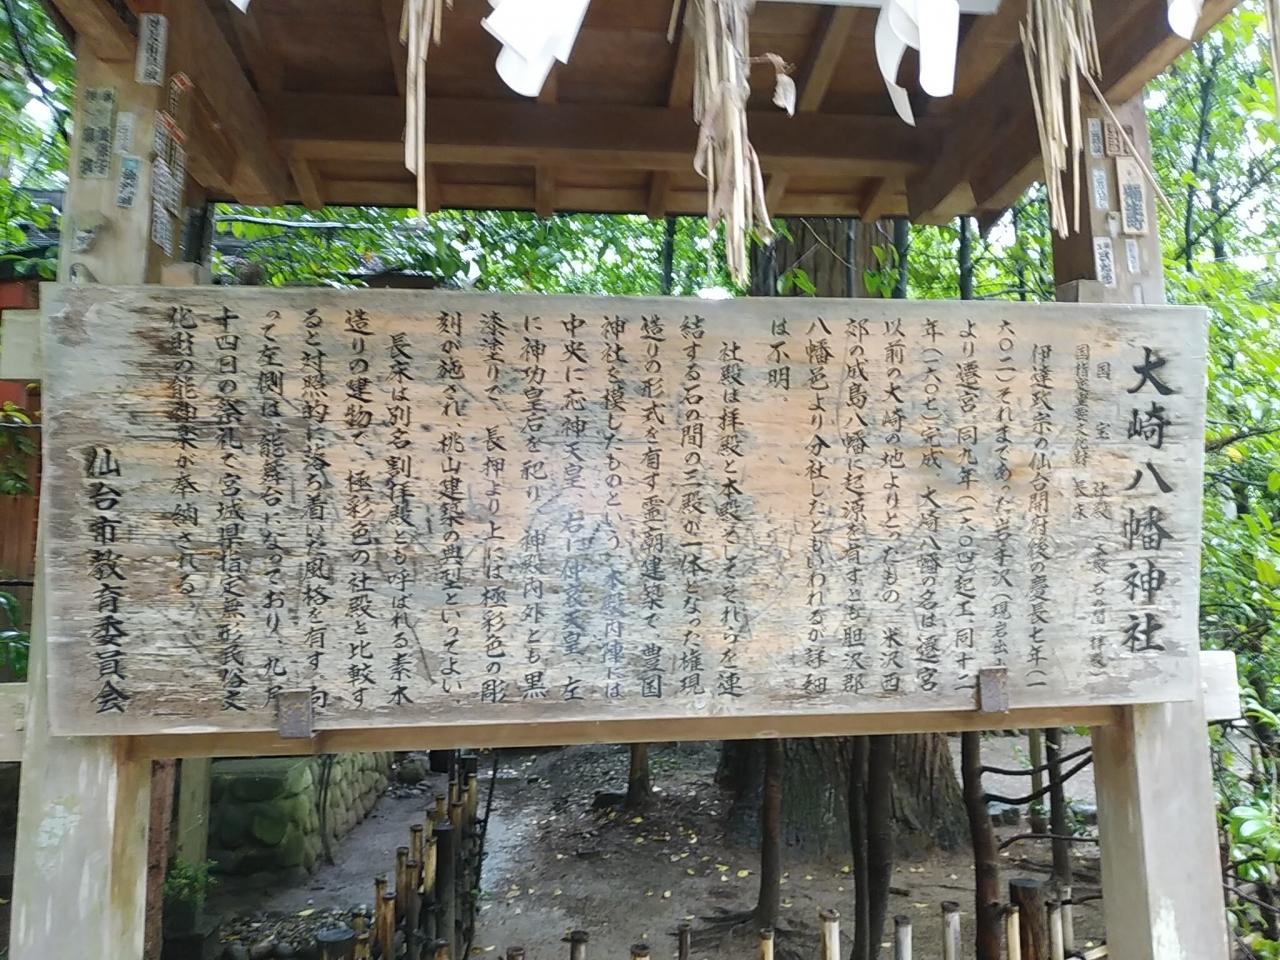 大崎八幡神社
国宝 社殿（本殿 石の間 拝殿）
国指定重要文化財 長床
伊達政宗の仙台開府後の慶長七年（一
六〇二）それまであった岩手沢（現岩出山）
より遷宮、同九年（一六〇四）起工、同十二
年（一六〇七）完成、大崎八幡の名は遷宮
以前の大崎の地よりとったもの、米沢西
郊の成島八幡に起源を有すとも胆沢郡
八幡邑より分社したともいわれるが詳細
は不明、
社殿は拝殿と本殿とそしてそれらを連
結する石の間の三殿が一体となった権現
造りの形式を有す霊朝建築で、豊国
神社を模したものという、本殿内陣には
中央に応神天皇、右に仲哀天皇、左
に神功皇后を祀り、神殿内外とも黒
漆塗りで、長押より上には極彩色の彫
刻が施され、桃山建築の典型といってよい、
長床は別名割拝殿とも呼ばれる素木
造りの建物で、極彩色の社殿と比較す
ると対照的に落ち着いた風格を有す、向
って左側は、能舞台になっており、九月
十四日の祭礼で宮城県指定無形民俗文
化財の能神楽が奉納される、
仙台市教育委員会